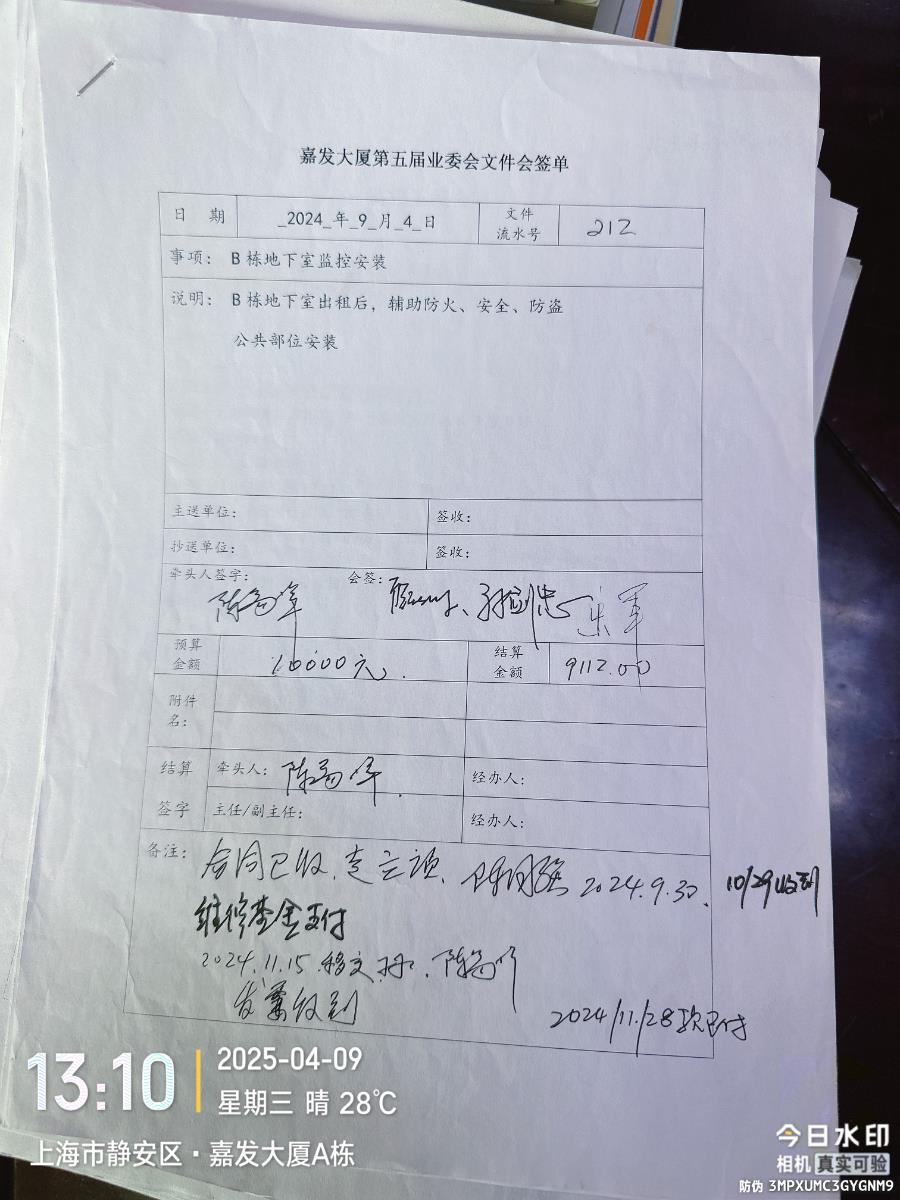 嘉发大厦第五届业委会文件会签单
日 期 _2024_年_9_月_4_日 文件流水号 212
事项： B 栋地下室监控安装
说明： B 栋地下室出租后，辅助防火、安全、防盗
公共部位安装
主送单位： 签收：
抄送单位： 签收：
牵头人签字： 会签：
预算金额 10000元. 结算金额 9112.00
附件名：
结算签字 牵头人： 经办人：
主任/副主任： 经办人：
备注： 合同已收. 2024.9.30. 10/29收到
维修基金支付
2024.11.15.
发票收到
2024/11/28款已付
13:10
2025-04-09
星期三 晴 28℃
上海市静安区·嘉发大厦A栋
今日水印
相机 真实可验
防伪 3MPXUMC3GYGNM9